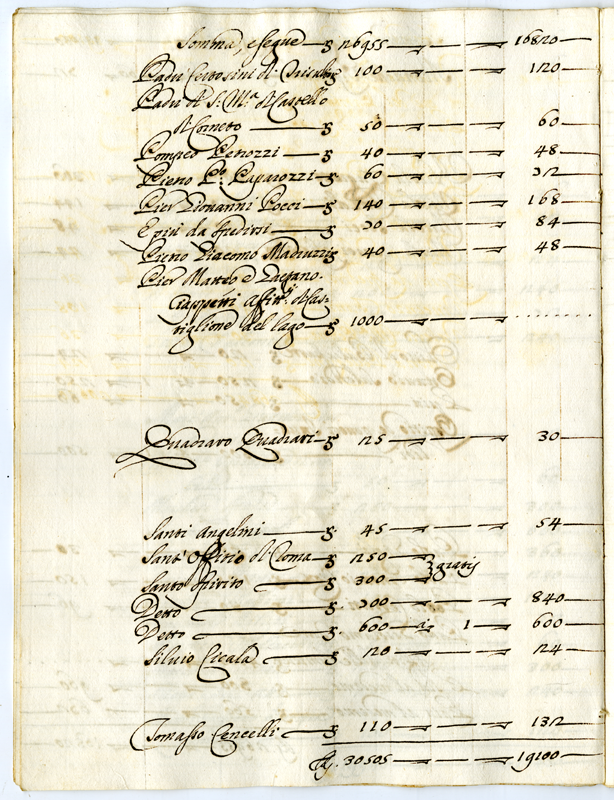 Somma, e segue — ʒ 26955 — — 16820
Padri Certosini di Trisulti ʒ 100 — — 120
Padri di S: M.ª di Castello
di Corneto — ʒ 50 — — 60
Pompeo Perozzi — ʒ 40 — — 48
Pietro P.º Paparozzi — ʒ 60 — — 72
Pier Giovanni Pocci — ʒ 140 — — 168
E più da spedirsi — ʒ 70 — — 84
Pietro Giacomo ʒ 40 — — 48
Pier Matteo e Gaetano
affitt.ri di Cas-
tiglione del lago — ʒ 1000 — — ........
Quadraro Quadrari — ʒ 25 — — 30
Santi Angelini — ʒ 45 — — 54
Sant'Offitio di Roma — ʒ 250 — gratis
Santo Spirito — ʒ 300 —
Detto — ʒ 700 — — 840
Detto — ʒ 600 — a 1 — 600
Silvio Cicala — ʒ 20 — — 24
Tomasso Cencelli — ʒ 110 — — 132
30505 — — 19100